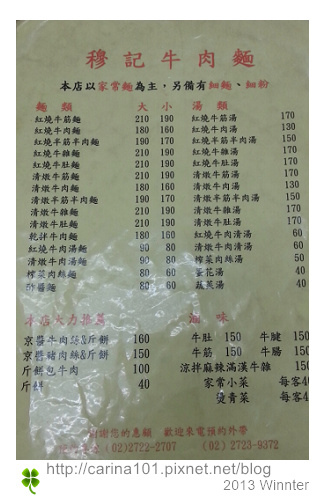 穆記牛肉麵
本店以家常麵為主，另備有細麵、細粉
麵類 大 小
紅燒牛筋麵 210 190
紅燒牛肉麵 180 160
紅燒半筋半肉麵 190 170
紅燒牛雜麵 210 190
紅燒牛肚麵 210 190
清燉牛筋麵 210 190
清燉牛肉麵 180 160
清燉半筋半肉麵 190 170
清燉牛雜麵 210 190
清燉牛肚麵 210 190
乾拌牛肉麵 180 160
紅燒牛肉湯麵 90 80
清燉牛肉湯麵 90 80
榨菜肉絲麵 80 60
炸醬麵 80 60
湯類
紅燒牛筋湯 170
紅燒牛肉湯 130
紅燒半筋半肉湯 150
紅燒牛雜湯 170
紅燒牛肚湯 170
清燉牛筋湯 170
清燉牛肉湯 130
清燉半筋半肉湯 150
清燉牛雜湯 170
清燉牛肚湯 170
紅燒牛肉清湯 60
清燉牛肉清湯 60
榨菜肉絲湯 50
蛋花湯 40
蔬菜湯 40
本店大力推薦
京醬牛肉絲&斤餅 160
京醬豬肉絲&斤餅 150
斤餅包牛肉 100
斤餅 40
滷味
牛肚 150 牛腱 150
牛筋 150 牛腸 150
涼拌麻辣滿漢牛雜 150
家常小菜 每客40
燙青菜 每客40
謝謝您的惠顧 歡迎來電預約外帶
(02)2722-2707 (02)2723-9372
http://carina101.pixnet.net/blog
2013 Winnter